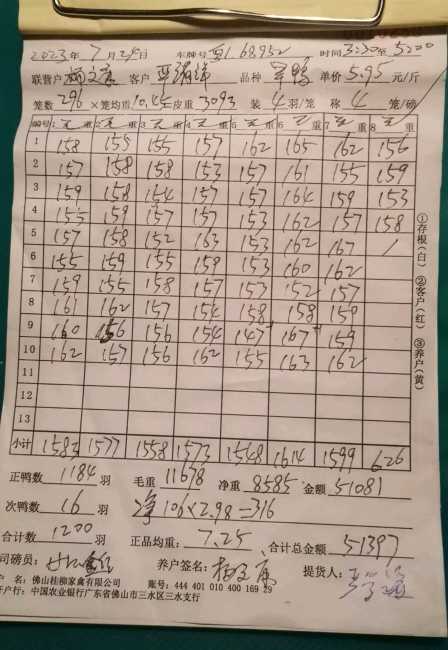 2023年7月29日 车牌号 时间3:20至5:00
联营户 客户 品种 单价5.95元/斤
笼数296×笼均重10.45=皮重3093 装4羽/笼 称4笼/磅
编号 1 重 2 重 3 重 4 重 5 重 6 重 7 重 8 重
1 158 155 155 157 162 165 162 156
2 157 158 158 153 157 161 155 159
3 159 158 154 157 157 164 159 153
4 155 159 157 157 153 162 157 158
5 157 158 152 163 153 162 167 /
6 155 159 155 159 153 160 162
7 159 155 158 157 153 152 157
8 161 162 157 154 158 158 158
9 160 156 156 154 147 167 159
10 162 157 156 162 155 163 162
11
12
13
小计 1583 1577 1558 1573 1548 1614 1599 626
正鸭数1184羽 毛重11678 净重8585 金额51081
次鸭数16羽 净106×2.98=316
合计数1200羽 正品均重:7.25 合计总金额51397
司磅员: 养户签名: 提货人:
户 名:佛山桂柳家禽有限公司 账号:444 401 010 400 169 29
开户行:中国农业银行广东省佛山市三水区三水支行
①存根(白) ②客户(红) ③养户(黄)